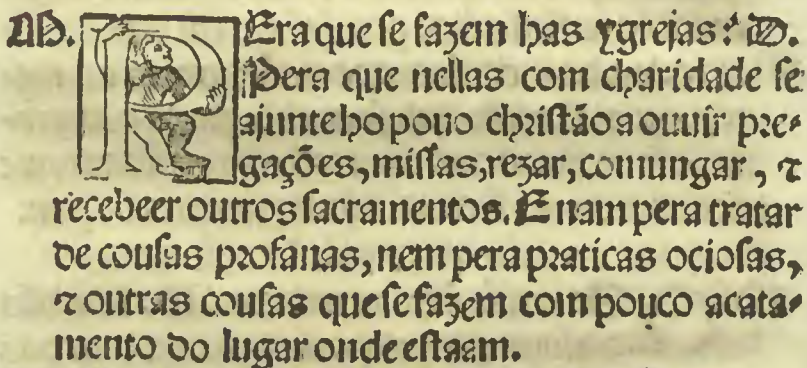 M. PEra que ſe fazem has ygrejas? D.
Pera que nellas com charidade ſe
ajunte ho pouo chriſtão a ouuir pre-
gações, miſſas, rezar, comungar, ⁊
recebeer outros ſacramentos. E nam pera tratar
de couſas profanas, nem pera praticas ocioſas,
⁊ outras couſas que ſe fazem com pouco acata-
mento do lugar onde eſtaam.